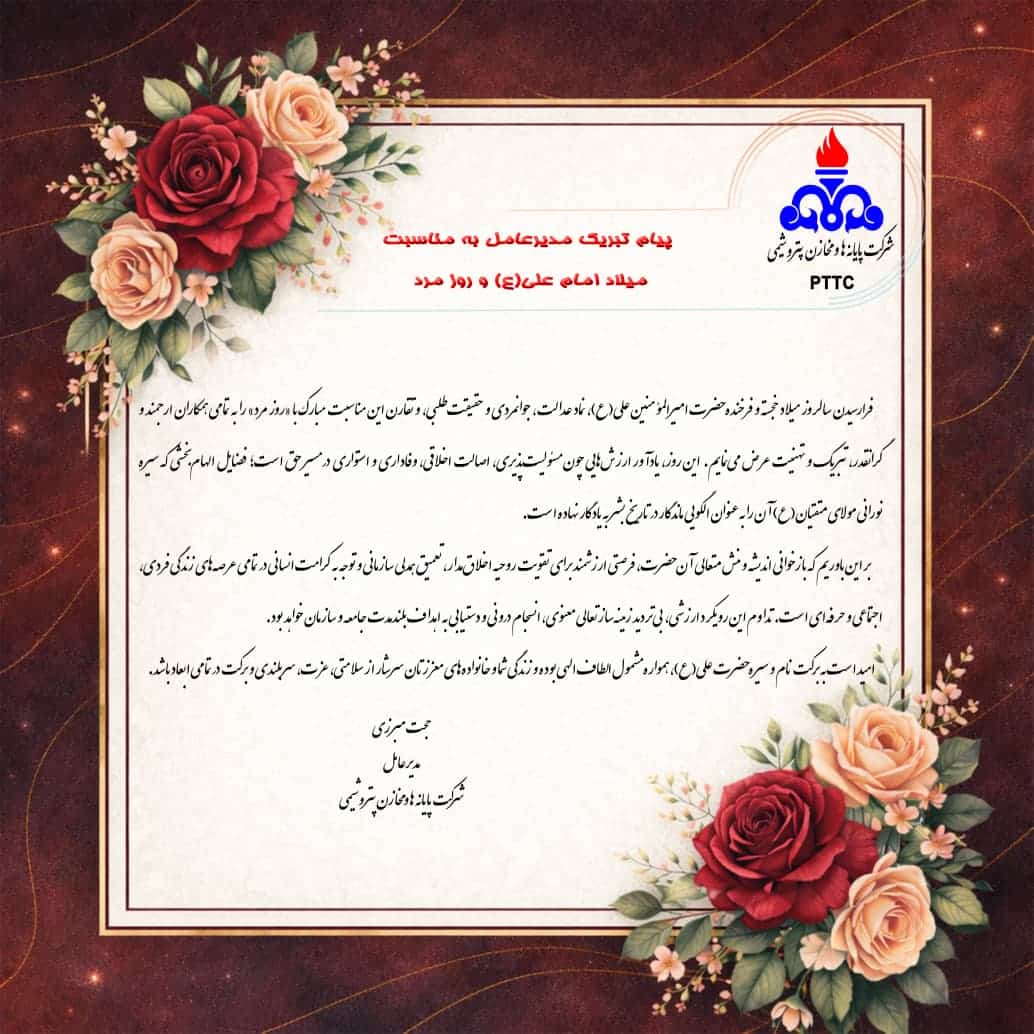 شرکت پایانه ها و مخازن پتروشیمی
PTTC
پیام تبریک مدیرعامل به مناسبت
میلاد امام علی(ع) و روز مرد
فرارسیدن سالروز میلاد خجسته و فرخنده حضرت امیرالمؤمنین علی(ع)، نماد عدالت، جوانمردی و حقیقت طلبی، و تقارن این مناسبت مبارک با «روز مرد» را به تمامی همکاران ارجمند و
گرانقدر، تبریک و تهنیت عرض می نمایم. این روز، یادآور ارزش هایی چون مسئولیت پذیری، اصالت اخلاقی، وفاداری و استواری در مسیر حق است؛ فضایل الهام بخشی که سیره
نورانی مولای متقیان (ع) آن را به عنوان الگویی ماندگار در تاریخ بشر به یادگار نهاده است.
بر این باوریم که بازخوانی اندیشه و منش متعالی آن حضرت، فرصتی ارزشمند برای تقویت روحیه اخلاق مدار، تعمیق همدلی سازمانی و توجه به کرامت انسانی در تمامی عرصه های زندگی فردی،
اجتماعی و حرفه ای است. تداوم این رویکرد ارزشی، بی تردید زمینه ساز تعالی معنوی، انسجام درونی و دستیابی به اهداف بلندمدت جامعه و سازمان خواهد بود.
امید است به برکت نام و سیره حضرت علی (ع)، همواره مشمول الطاف الهی بوده و زندگی شما و خانواده های معززتان سرشار از سلامتی، عزت، سربلندی و برکت در تمامی ابعاد باشد.
حجت میرزی
مدیرعامل
شرکت پایانه ها و مخازن پتروشیمی